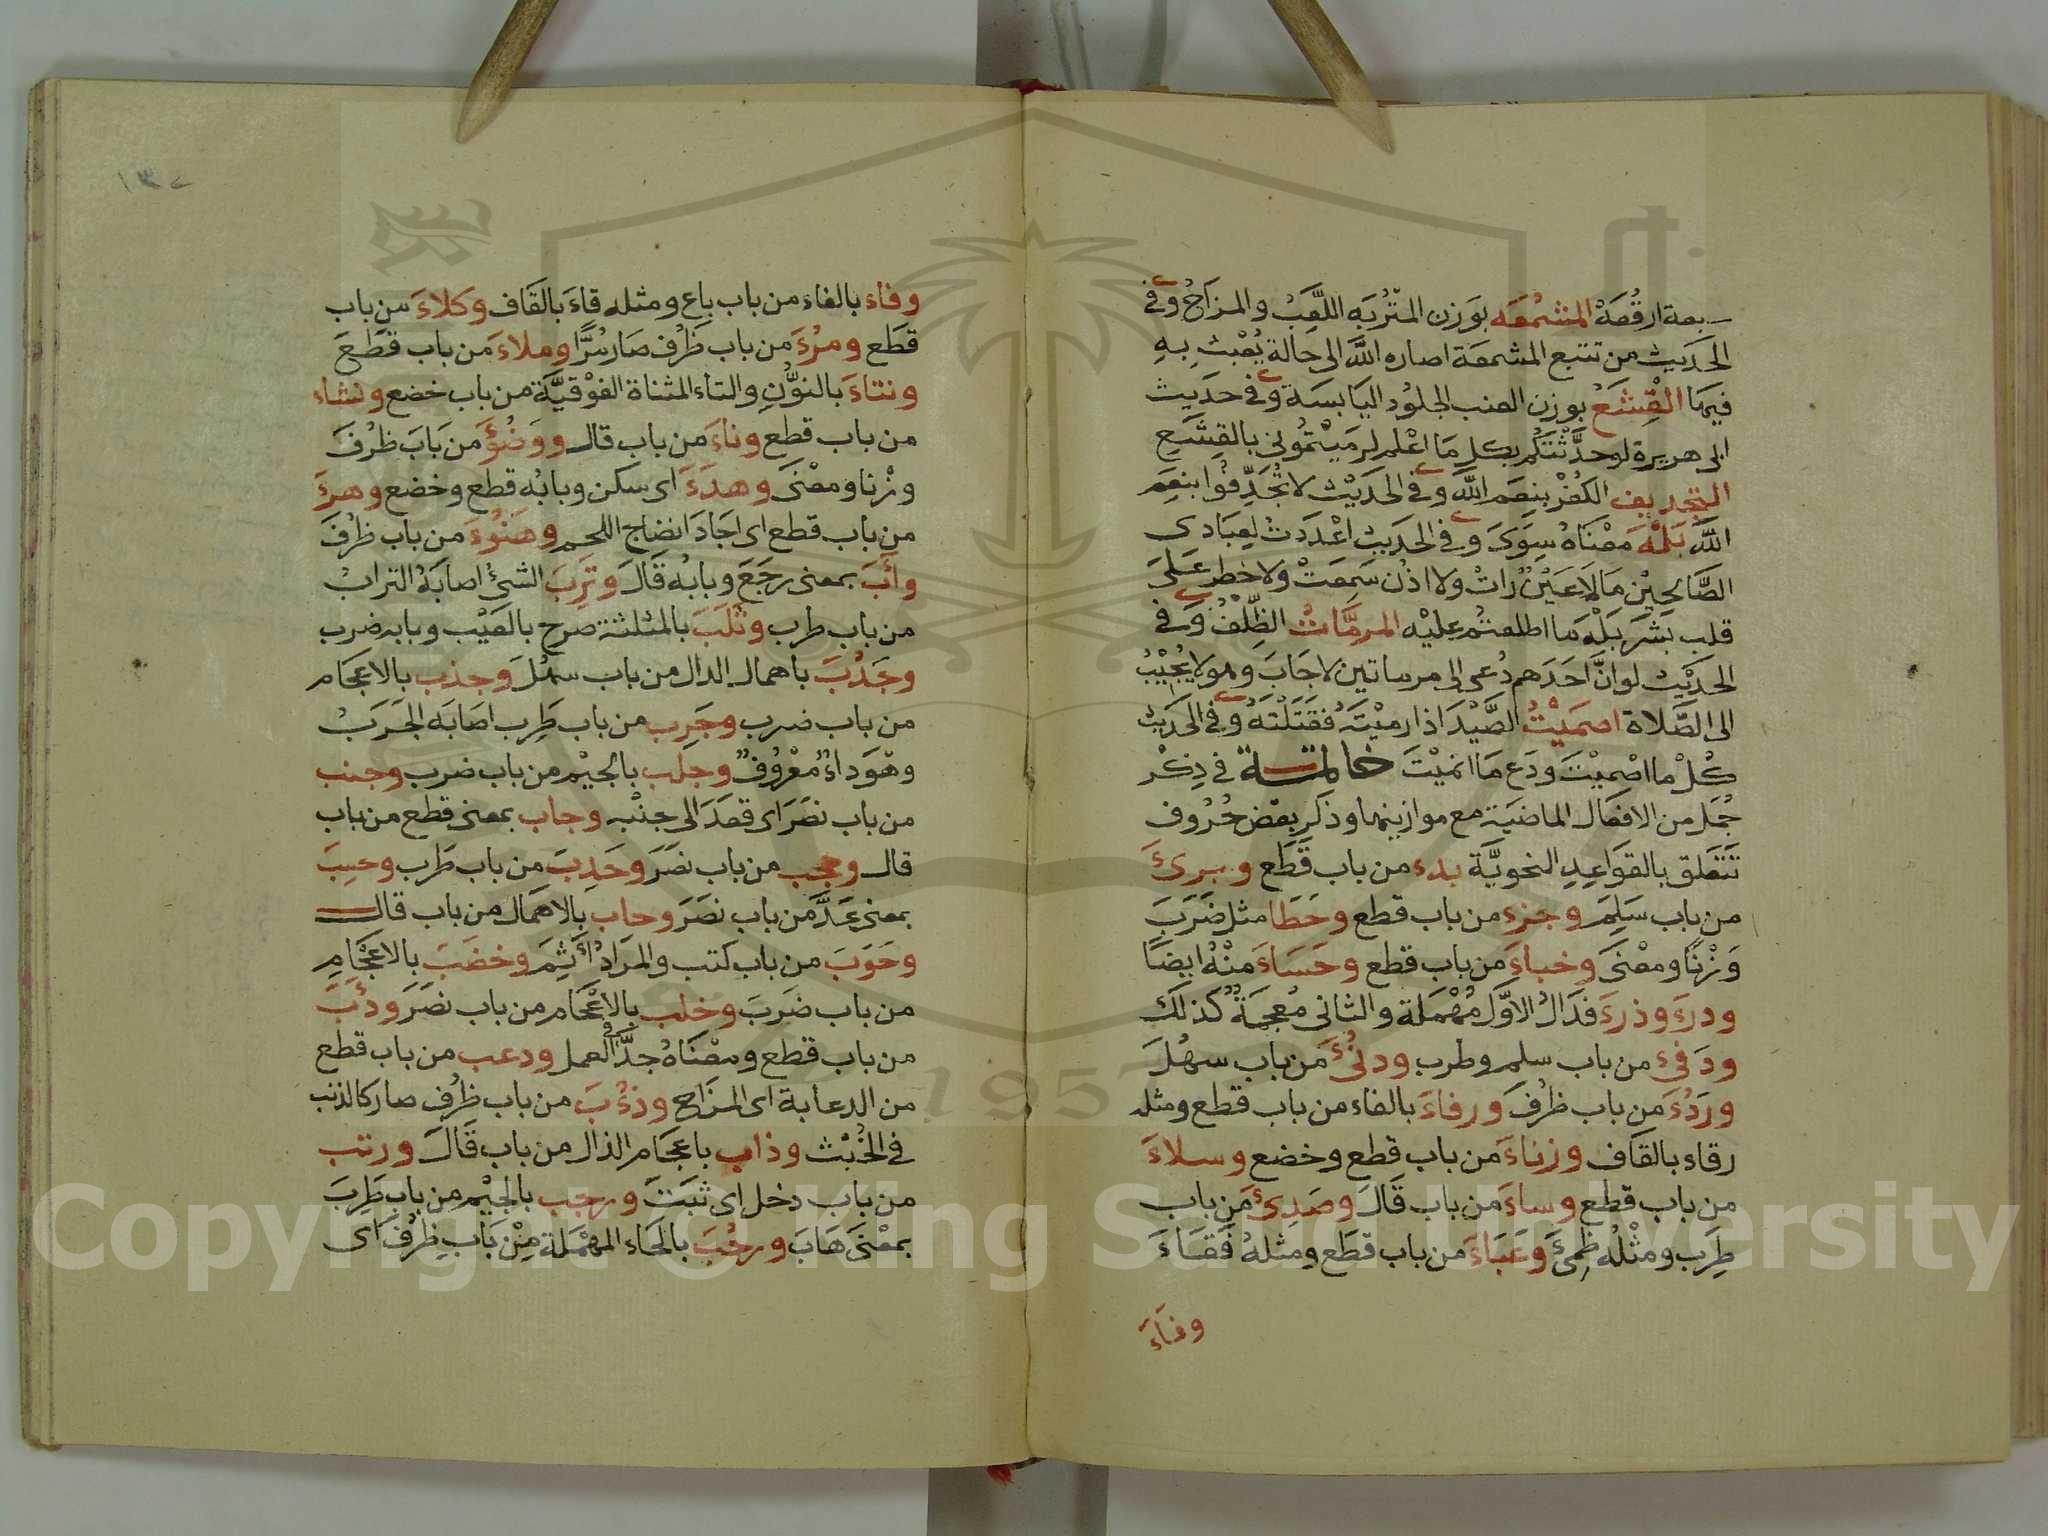 سبعة ارقُعَةْ المشمَعَه بوَزن المتْرُبَه اللَّعِبُ والمزاحُ وفى
الحَدِيث من تتبع المشمعَة اصاره اللَّه الى حالة يُعْبَث بِهِ
فيهَا القِشَعُ بوزن العنب الجلوُد اليَابسَة وفى حديث
ابى هريرة لو حدَّثتكُم بكل مَا اعْلم لرمَيْتموُنى بالقِشَع
التجديف الكُفرْ بنعَم اللَّه وفى الحَديْث لا تُجَدِّفوُا بنعَم
اللَّه بَلْهَ معْنَاهُ سِوَى وفى الحَديث اعْدَدتُ لعِبَادى
الصَّالحِيْن مَا لَا عَيْنٌ رَاتْ ولا اذُن سَمِعَتْ ولا خطر عَلى
قلب بَشَر بَلْه مَا اطلعتُم عليْه المرمَّاتُ الظِّلْفُ وفى
الحَديْث لو انَّ احَدَهم دُعى الى مرماتين لاجَابَ وهو لا يُجيْبُ
الى الصَّلاة اصمَيْتُ الصَّيْدَ اذا رميْتَهُ فقَتَلْتَهُ وفى الحَدِيث
كُلْ ما اصْميْتَ ودَع مَا انميْتَ خاتمة فى ذِكْر
جُمَل من الافعَال الماضيَة مع موازينها وذكر بعْض حُرُوف
تَتعَلق بالقوَاعِدِ النحويَّة بدء من باب قَطَع وبرئَ
من باب سَلِمَ وجزء من باب قطع وحَطَا مثل ضَرَبَ
وَزْنًا ومعْنَى وخباءَ من باب قطع وحَسَاءَ منْهُ ايضًا
ودرَءَ وذرءَ فدَالُ الاوَّل مُهْمَلة والثانى مُعجمَةٌ كذلكَ
ودَفئَ من باب سلم وطرب ودنُؤَ من باب سهُلَ
وردُءَ من باب ظرُفَ ورفاءَ بالفاء من باب قطع ومثله
رقاء بالقاف وزناءَ من باب قطع وخضع وسلاءَ
من باب قطع وساءَ من باب قَالَ وصَدِئَ من باب
طرَب ومثْلُه ظمِئَ وعَبَاءَ من باب قطَع ومثلهُ فَقَاءَ
وفاءَ
١٣٧
وفاءَ بالفاء من باب باع ومثله قاءَ بالقَاف وكلاءَ من باب
قطَع ومرُءَ من باب ظرُف صَار مُرًّا وملاءَ من باب قطَعَ
ونتاءَ بالنوُّنِ والتاء المثناة الفوْقيَّة من باب خضع ونشاء
من باب قطع وناءَ من باب قال ووَضُؤَ من بَابَ ظرُفَ
وزْنا ومعْنَى وهدَءَ اى سكن وبابُه قطع وخضع وهرءَ
من باب قطع اى اجَادَ انضاج اللحم وهَنُوءَ من باب ظرُفَ
وأبَ بمعنى رجَعَ وبابُه قَالَ وترِبَ الشئُ اصابَهُ الترابُ
من باب طرب وثلَبَ بالمثلثة صرح بالعَيْب وبابه ضرب
وجَدُبَ باهمال الدال من باب سهُلَ وجذب بالاعجَام
من باب ضرب وجَرِب من باب طَرِب اصَابَه الجَرَبُ
وهوَ دَاءٌ معْرُوفٌ وجلب بالجيْم من باب ضرب وجنب
من باب نصَرَ اى قعَدَ الى جنْبه وجاب بمعنى قطع من باب
قال وحجب من باب نصَرَ وحَدِبَ من باب طرَب وحسِبَ
بمعنى عَدَّ من باب نصَرَ وحاب بالاهمال من باب قال
وحَوَبَ من باب كتب والمرَادُ أَثِمَ وخضَبَ بالاعْجَامِ
من باب ضَرَبَ وخلب بالاعْجَام من باب نصَرَ ودأبَ
من باب قطع ومعْنَاهُ جدَّ فى العمل ودعب من باب قطع
من الدعابة اى المزَاح وذءُبَ من باب ظرُف صار كالذئب
فى الخُبْث وذاب باعجَام الذال من باب قَالَ ورتب
من باب دخل اى ثبَتَ ورجب بالجيْم من باب طَرِبَ
بمعْنَى هَابَ ورحُبَ بالحَاء المهْمَلة مِنْ بَابِ ظرُفَ اى
Copyright © King Saud University
1957